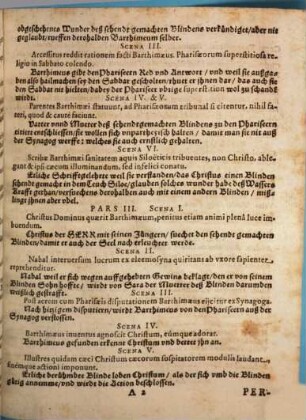 obgeschehens Wunder deß sehend gemachten Blindens verkündiget/aber nit
geglaubt/ruffen derohalben Barthimeum selber.
SCENA III.
Arcessitus reddit rationem facti Barthimæus. Pharisæorum superstitiosa re-
ligio in Sabbato colendo.
Barthimeus gibt den Phariseern Red und Antwort / und weil sie außgaben
also haimachen an den Sabbat geschehen/ehret er ihnen dar/ das auch sie den
Sabbat nit hielten/ dahero der Phariseer obige superstition wol zu
SCENA IV. & V.
Parentes Barthimæi statuunt, ad Pharisæorum tribunal si citentur, nihil fa-
teri, quod & caute faciunt.
Vatter unnd Mutter deß sehendgemachten Blindens zu den Phariseern
citiert entschliessen/sie wollen sich unpartheyisch halten / damit man sie nit auß
der Synagog werffe: welches sie auch klüglich thuen.
SCENA VI.
Scribæ Barthimæi sanitatem aquis Siloëticis tribuentes, non Christo, able-
gant & ipsi cæcum illuminandum, sed infelici conatu.
Etliche Schrifftgelehrte weil sie verstanden/das Christus einen Blinden
sehend gemacht in dem Teuch Siloe/glauben solches wunder habe deß Wassers
Krafft gethan/versuchens derohalben auch mit einem andern Blinden / miß-
linge ihnen aber übel.
PARS III. SCENA I.
Christus Dominus quærit Barthimæum, penitus etiam animi plenâ luce im-
buendum.
Christus der HERR mit seinen Jüngern/ suechet den sehende gemachten
Blinden/damit er auch der Seel nach erleuchtet werde.
SCENA II.
Nabal interversum lucrum ex eleemosyna quiritans ab vxore sapienter
reprehenditur.
Nabal weil er sich wegen auffgehebten Gewins beklaget/den er von seinem
Blinden Sohn hoffte/ wirdt von Sara der Mutter deß Blinden darumben
weißlich gestrafft.
SCENA III.
Post acrem cum Pharisæis disputationem Barthimæus eijcitur ex Synagoga.
Nach hitzigem disputieren/ wirdt Barthimeus von den Phariseern auß der
Synagog verstossen.
SCENA IV.
Barthimæus inventus agnoscit Christum, eumque adorat.
Barthimeus gefunden erkennt Christum und bettet ihn an.
SCENA V.
Illustres quidam cæci Christum cæcorum sospitatorem modulis laudant
finemque actioni imponunt.
Etliche berühmbte Blinde loben Christum / als der sich umb die Blinden
gütig annemme/und wirdt die Action beschlossen.
A 2 PER-